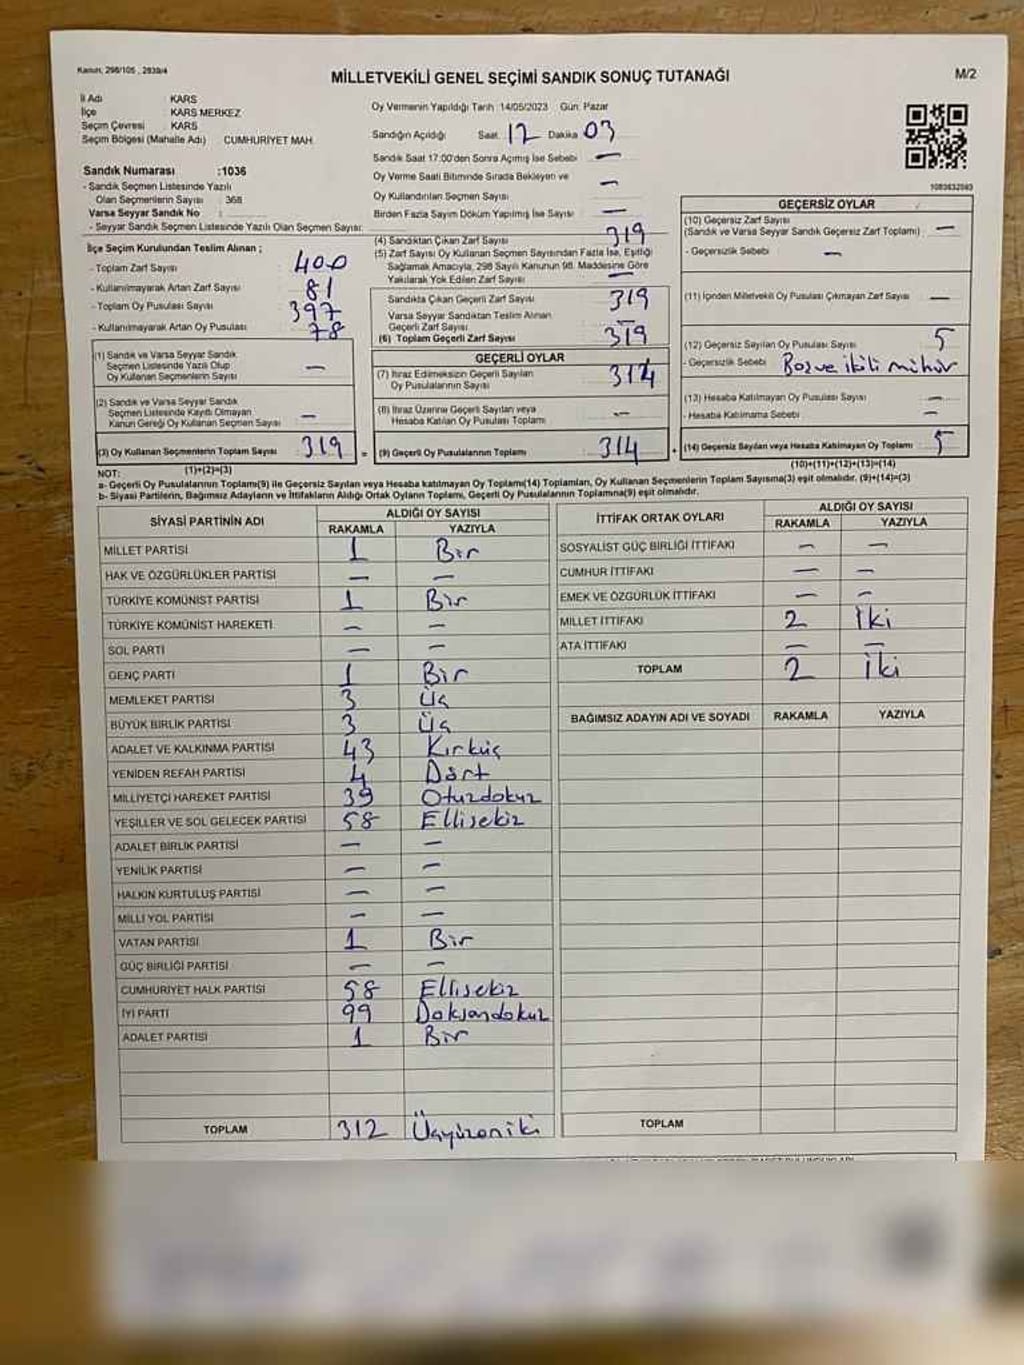 Kanun; 298/105 , 2839/4
MİLLETVEKİLİ GENEL SEÇİMİ SANDIK SONUÇ TUTANAĞI
M/2
İl Adı KARS
İlçe KARS MERKEZ
Seçim Çevresi KARS
Seçim Bölgesi (Mahalle Adı) CUMHURİYET MAH.
Sandık Numarası :1036
- Sandık Seçmen Listesinde Yazılı
Olan Seçmenlerin Sayısı : 368
Varsa Seyyar Sandık No :
- Seyyar Sandık Seçmen Listesinde Yazılı Olan Seçmen Sayısı:
İlçe Seçim Kurulundan Teslim Alınan ;
- Toplam Zarf Sayısı 400
- Kullanılmayarak Artan Zarf Sayısı 81
- Toplam Oy Pusulası Sayısı 397
- Kullanılmayarak Artan Oy Pusulası 78
(1) Sandık ve Varsa Seyyar Sandık
Seçmen Listesinde Yazılı Olup
Oy Kullanan Seçmenlerin Sayısı —
(2) Sandık ve Varsa Seyyar Sandık
Seçmen Listesinde Kayıtlı Olmayan
Kanun Gereği Oy Kullanan Seçmen Sayısı —
(3) Oy Kullanan Seçmenlerin Toplam Sayısı 319 =
(1)+(2)=(3)
Oy Vermenin Yapıldığı Tarih :14/05/2023 Gün: Pazar
Sandığın Açıldığı Saat: 12 Dakika 03
Sandık Saat 17:00'den Sonra Açılmış İse Sebebi —
Oy Verme Saati Bitiminde Sırada Bekleyen ve
Oy Kullandırılan Seçmen Sayısı —
Birden Fazla Sayım Döküm Yapılmış İse Sayısı —
(4) Sandıktan Çıkan Zarf Sayısı 319
(5) Zarf Sayısı Oy Kullanan Seçmen Sayısından Fazla İse, Eşitliği
Sağlamak Amacıyla, 298 Sayılı Kanunun 98. Maddesine Göre
Yakılarak Yok Edilen Zarf Sayısı —
Sandıkta Çıkan Geçerli Zarf Sayısı 319
Varsa Seyyar Sandıktan Teslim Alınan
Geçerli Zarf Sayısı —
(6) Toplam Geçerli Zarf Sayısı 319
GEÇERLİ OYLAR
(7) İtiraz Edilmeksizin Geçerli Sayılan
Oy Pusulalarının Sayısı 314
(8) İtiraz Üzerine Geçerli Sayılan veya
Hesaba Katılan Oy Pusulası Toplamı —
(9) Geçerli Oy Pusulalarının Toplamı 314 +
1083632093
GEÇERSİZ OYLAR
(10) Geçersiz Zarf Sayısı
(Sandık ve Varsa Seyyar Sandık Geçersiz Zarf Toplamı) —
- Geçersizlik Sebebi —
(11) İçinden Milletvekili Oy Pusulası Çıkmayan Zarf Sayısı —
(12) Geçersiz Sayılan Oy Pusulası Sayısı 5
- Geçersizlik Sebebi Boş ve ikili mühür
(13) Hesaba Katılmayan Oy Pusulası Sayısı —
- Hesaba Katılmama Sebebi —
(14) Geçersiz Sayılan veya Hesaba Katılmayan Oy Toplamı 5
(10)+(11)+(12)+(13)=(14)
NOT:
a- Geçerli Oy Pusulalarının Toplamı(9) ile Geçersiz Sayılan veya Hesaba katılmayan Oy Toplamı(14) Toplamları, Oy Kullanan Seçmenlerin Toplam Sayısına(3) eşit olmalıdır. (9)+(14)=(3)
b- Siyasi Partilerin, Bağımsız Adayların ve İttifakların Aldığı Ortak Oyların Toplamı, Geçerli Oy Pusulalarının Toplamına(9) eşit olmalıdır.
SİYASİ PARTİNİN ADI ALDIĞI OY SAYISI
RAKAMLA YAZIYLA
MİLLET PARTİSİ 1 Bir
HAK VE ÖZGÜRLÜKLER PARTİSİ — —
TÜRKİYE KOMÜNİST PARTİSİ 1 Bir
TÜRKİYE KOMÜNİST HAREKETİ — —
SOL PARTİ — —
GENÇ PARTİ 1 Bir
MEMLEKET PARTİSİ 3 Üç
BÜYÜK BİRLİK PARTİSİ 3 Üç
ADALET VE KALKINMA PARTİSİ 43 Kırküç
YENİDEN REFAH PARTİSİ 4 Dört
MİLLİYETÇİ HAREKET PARTİSİ 39 Otuzdokuz
YEŞİLLER VE SOL GELECEK PARTİSİ 58 Ellisekiz
ADALET BİRLİK PARTİSİ — —
YENİLİK PARTİSİ — —
HALKIN KURTULUŞ PARTİSİ — —
MİLLİ YOL PARTİSİ — —
VATAN PARTİSİ 1 Bir
GÜÇ BİRLİĞİ PARTİSİ — —
CUMHURİYET HALK PARTİSİ 58 Ellisekiz
İYİ PARTİ 99 Doksandokuz
ADALET PARTİSİ 1 Bir
TOPLAM 312 Üçyüzoniki
İTTİFAK ORTAK OYLARI ALDIĞI OY SAYISI
RAKAMLA YAZIYLA
SOSYALİST GÜÇ BİRLİĞİ İTTİFAKI — —
CUMHUR İTTİFAKI — —
EMEK VE ÖZGÜRLÜK İTTİFAKI — —
MİLLET İTTİFAKI 2 İki
ATA İTTİFAKI — —
TOPLAM 2 İki
BAĞIMSIZ ADAYIN ADI VE SOYADI RAKAMLA YAZIYLA
TOPLAM